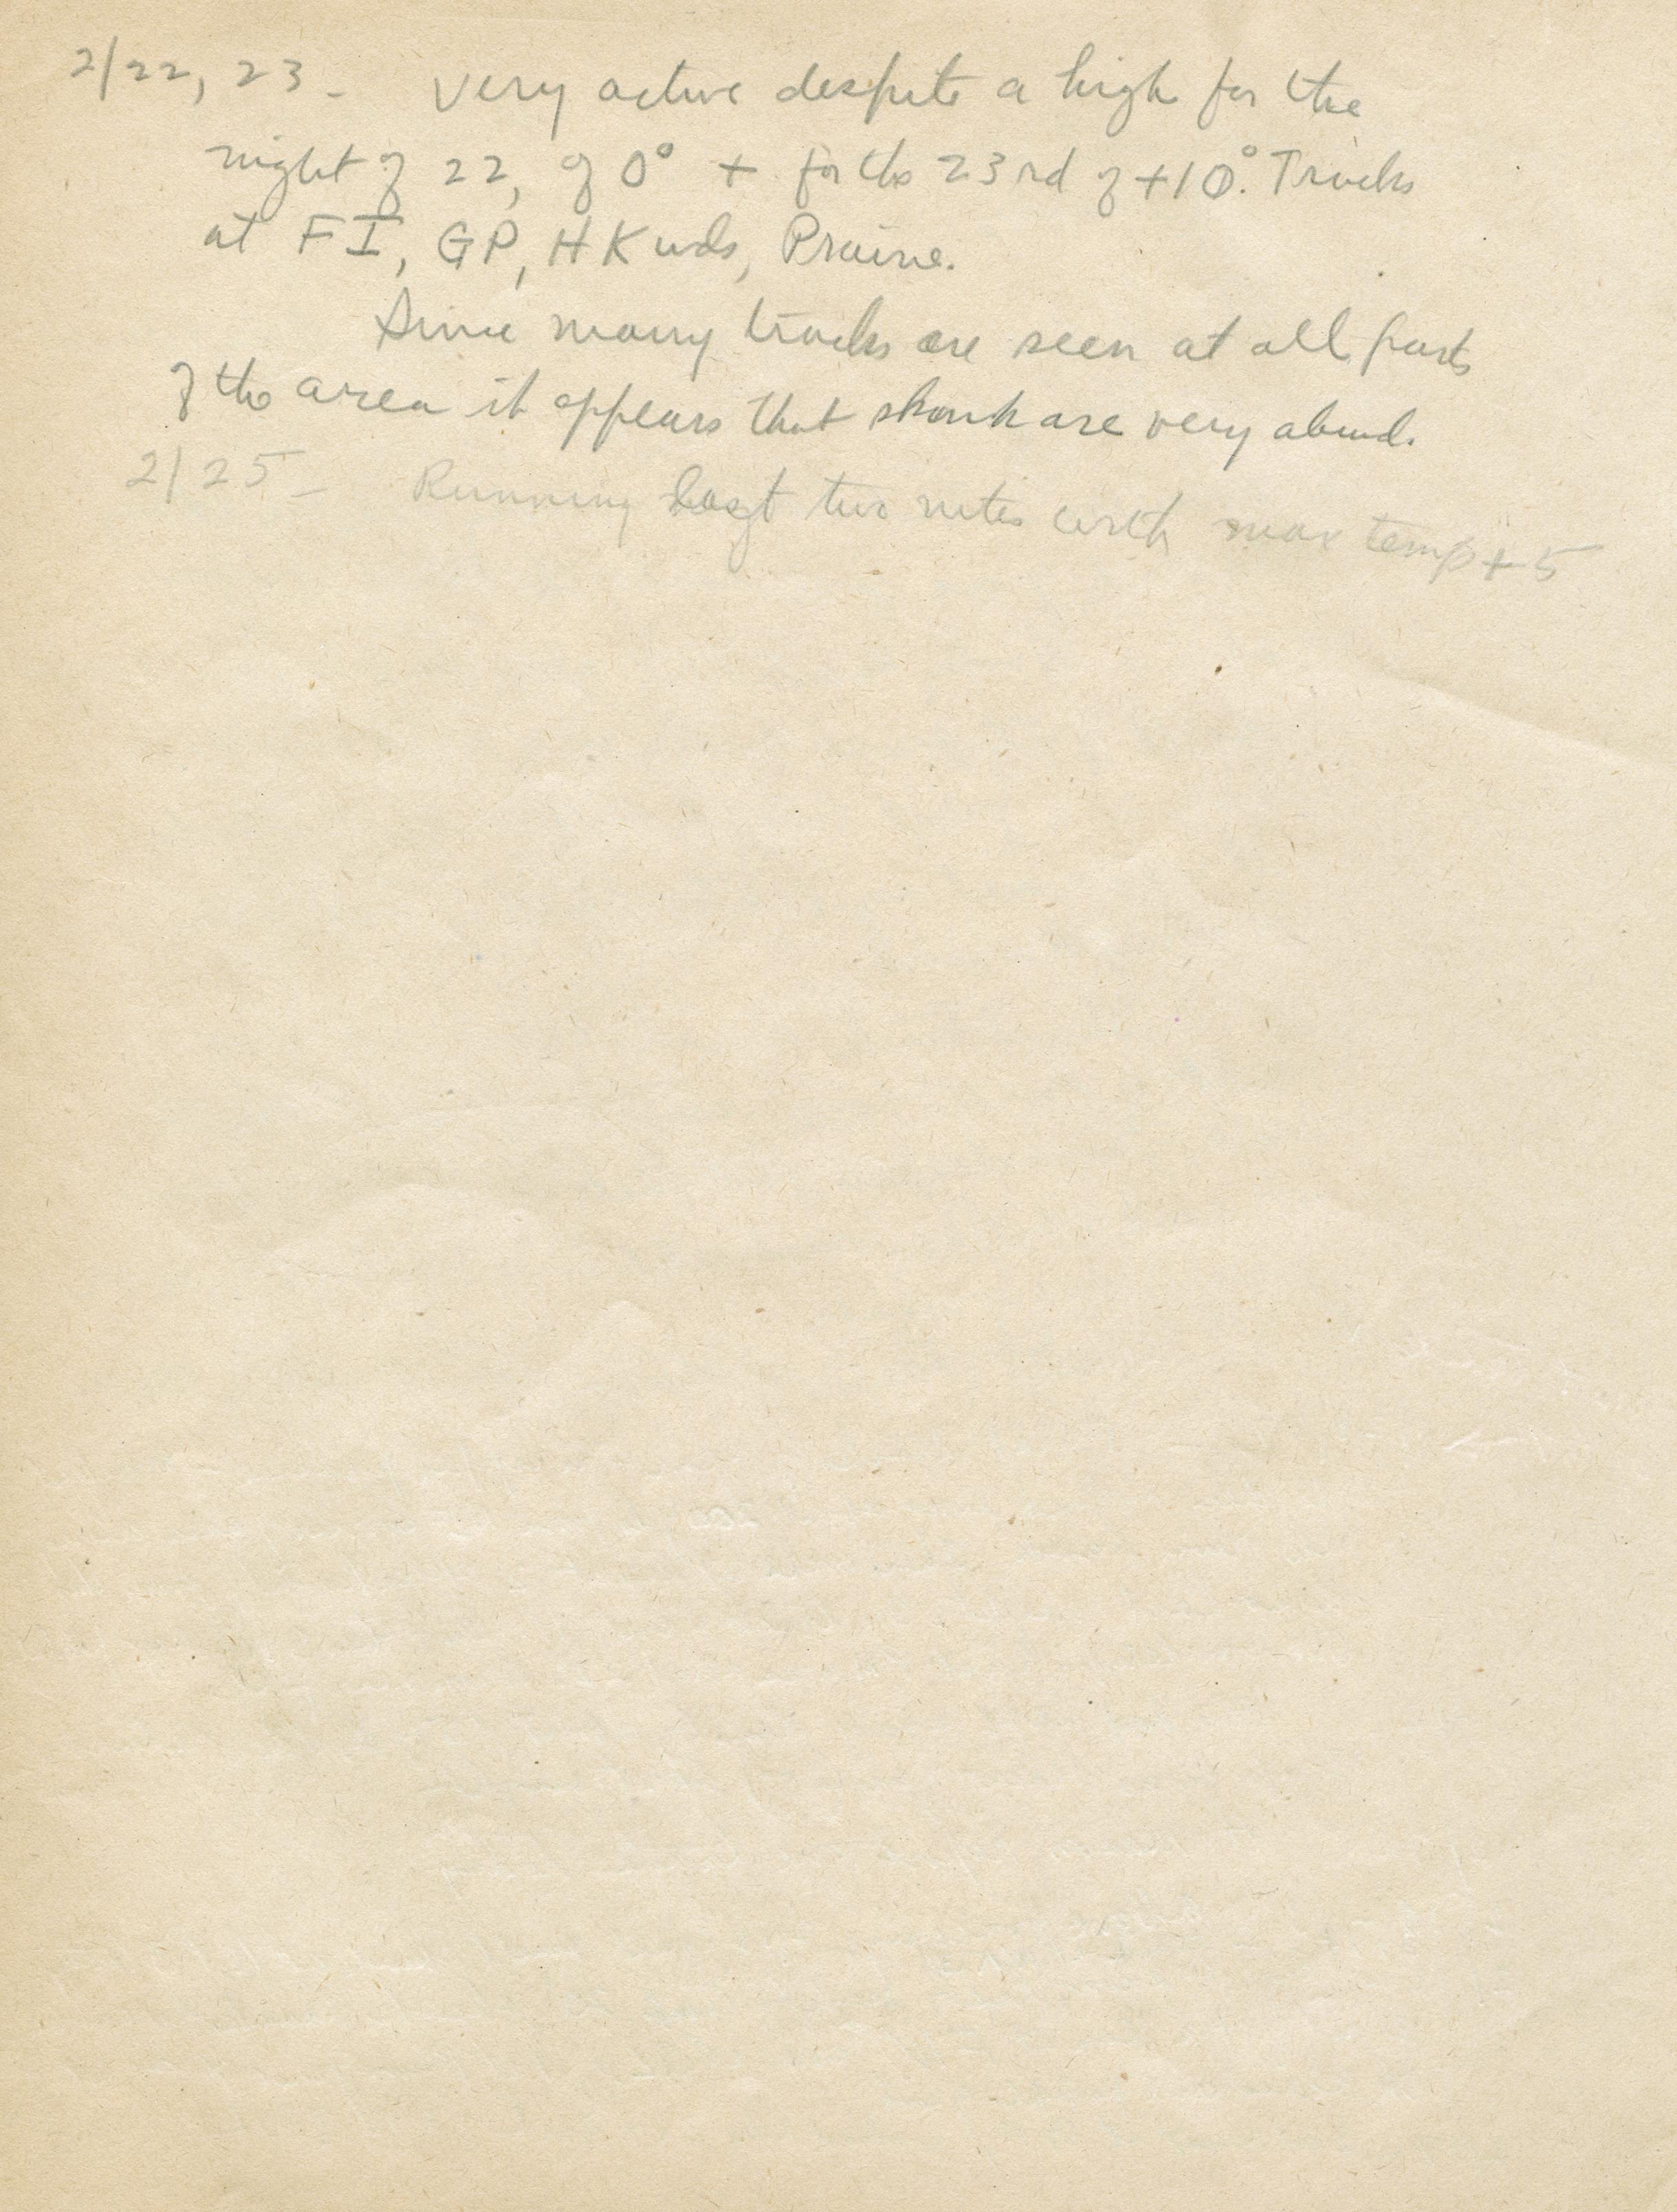 2/22, 23 - Very active despite a high for the
night of 22, of 0° + for the 23rd of +10°. Tracks
at FI, GP, HK wds, Prairie.
Since many tracks are seen at all parts
of the area it appears that skunk are very abund.
2/25 - Running last two nites with max temp + 5